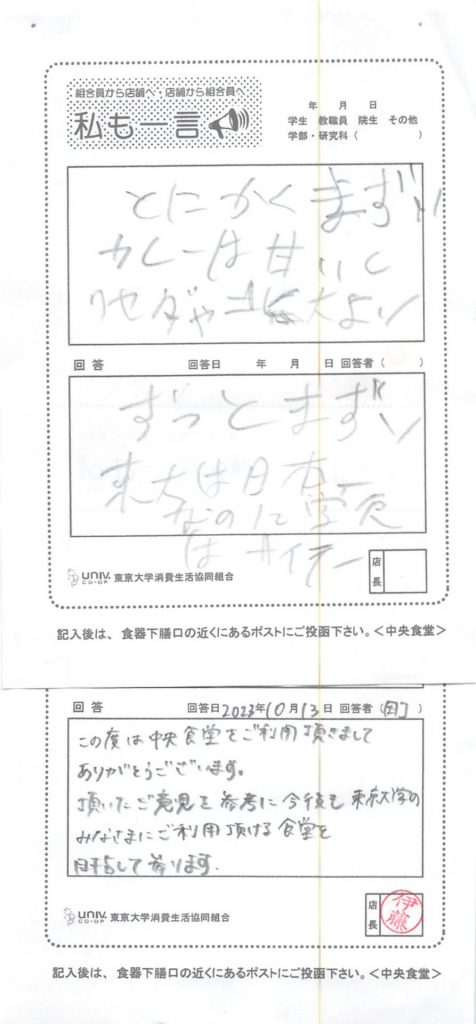 組合員から店舗へ・店舗から組合員へ
私も一言
年 月 日
学生 教職員 院生 その他
学部・研究科（ ）
とにかくまずい
カレーは甘いし
ワセダや北大よい
回答 回答日 年 月 日 回答者（ ）
ずっとまずい
東大は日本一
なのに学食
はサイテー
店長
UNIV. CO-OP 東京大学消費生活協同組合
記入後は、食器下膳口の近くにあるポストにご投函下さい。＜中央食堂＞
回答 回答日2023年10月13日 回答者（ ）
この度は中央食堂をご利用頂きまして
ありがとうございます。
頂いたご意見を参考に今後も東京大学の
みなさまにご利用頂ける食堂を
目指して参ります.
店長 伊藤
UNIV. CO-OP 東京大学消費生活協同組合
記入後は、食器下膳口の近くにあるポストにご投函下さい。＜中央食堂＞